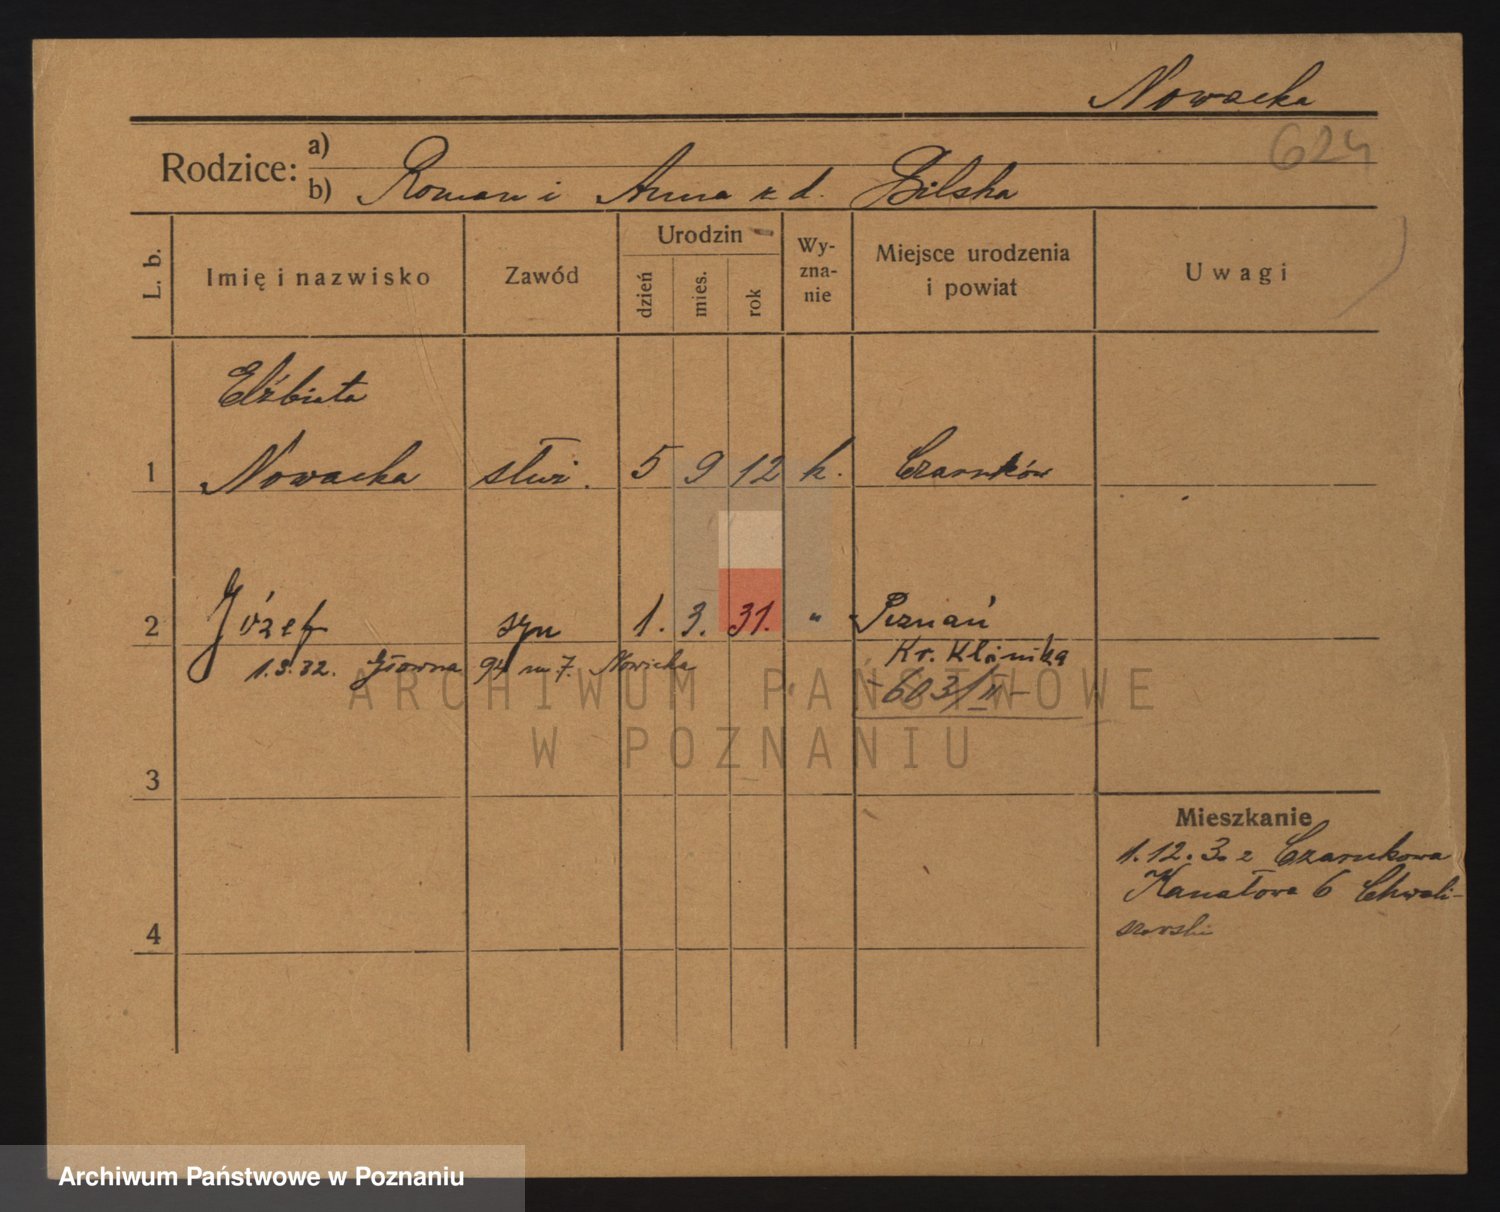 Nowacka
624
Rodzice: a)
b) Roman i Anna z d. Bilska
L. b. Imię i nazwisko Zawód Urodzin dzień mies. rok Wy-zna-nie Miejsce urodzenia i powiat Uwagi
Elżbieta
1 Nowacka służ. 5 9 12 k. Czarnków
2 Józef syn 1. 3. 31. " Poznań
Kr. Klinika
1.3.32. Główna 94 m 7. Nowicka
- 603/II -
ARCHIWUM PAŃSTWOWE
W POZNANIU
3
Mieszkanie
1.12.30 z Czarnkowa
Kanałowa 6 Chwali-
szewski
4
Archiwum Państwowe w Poznaniu